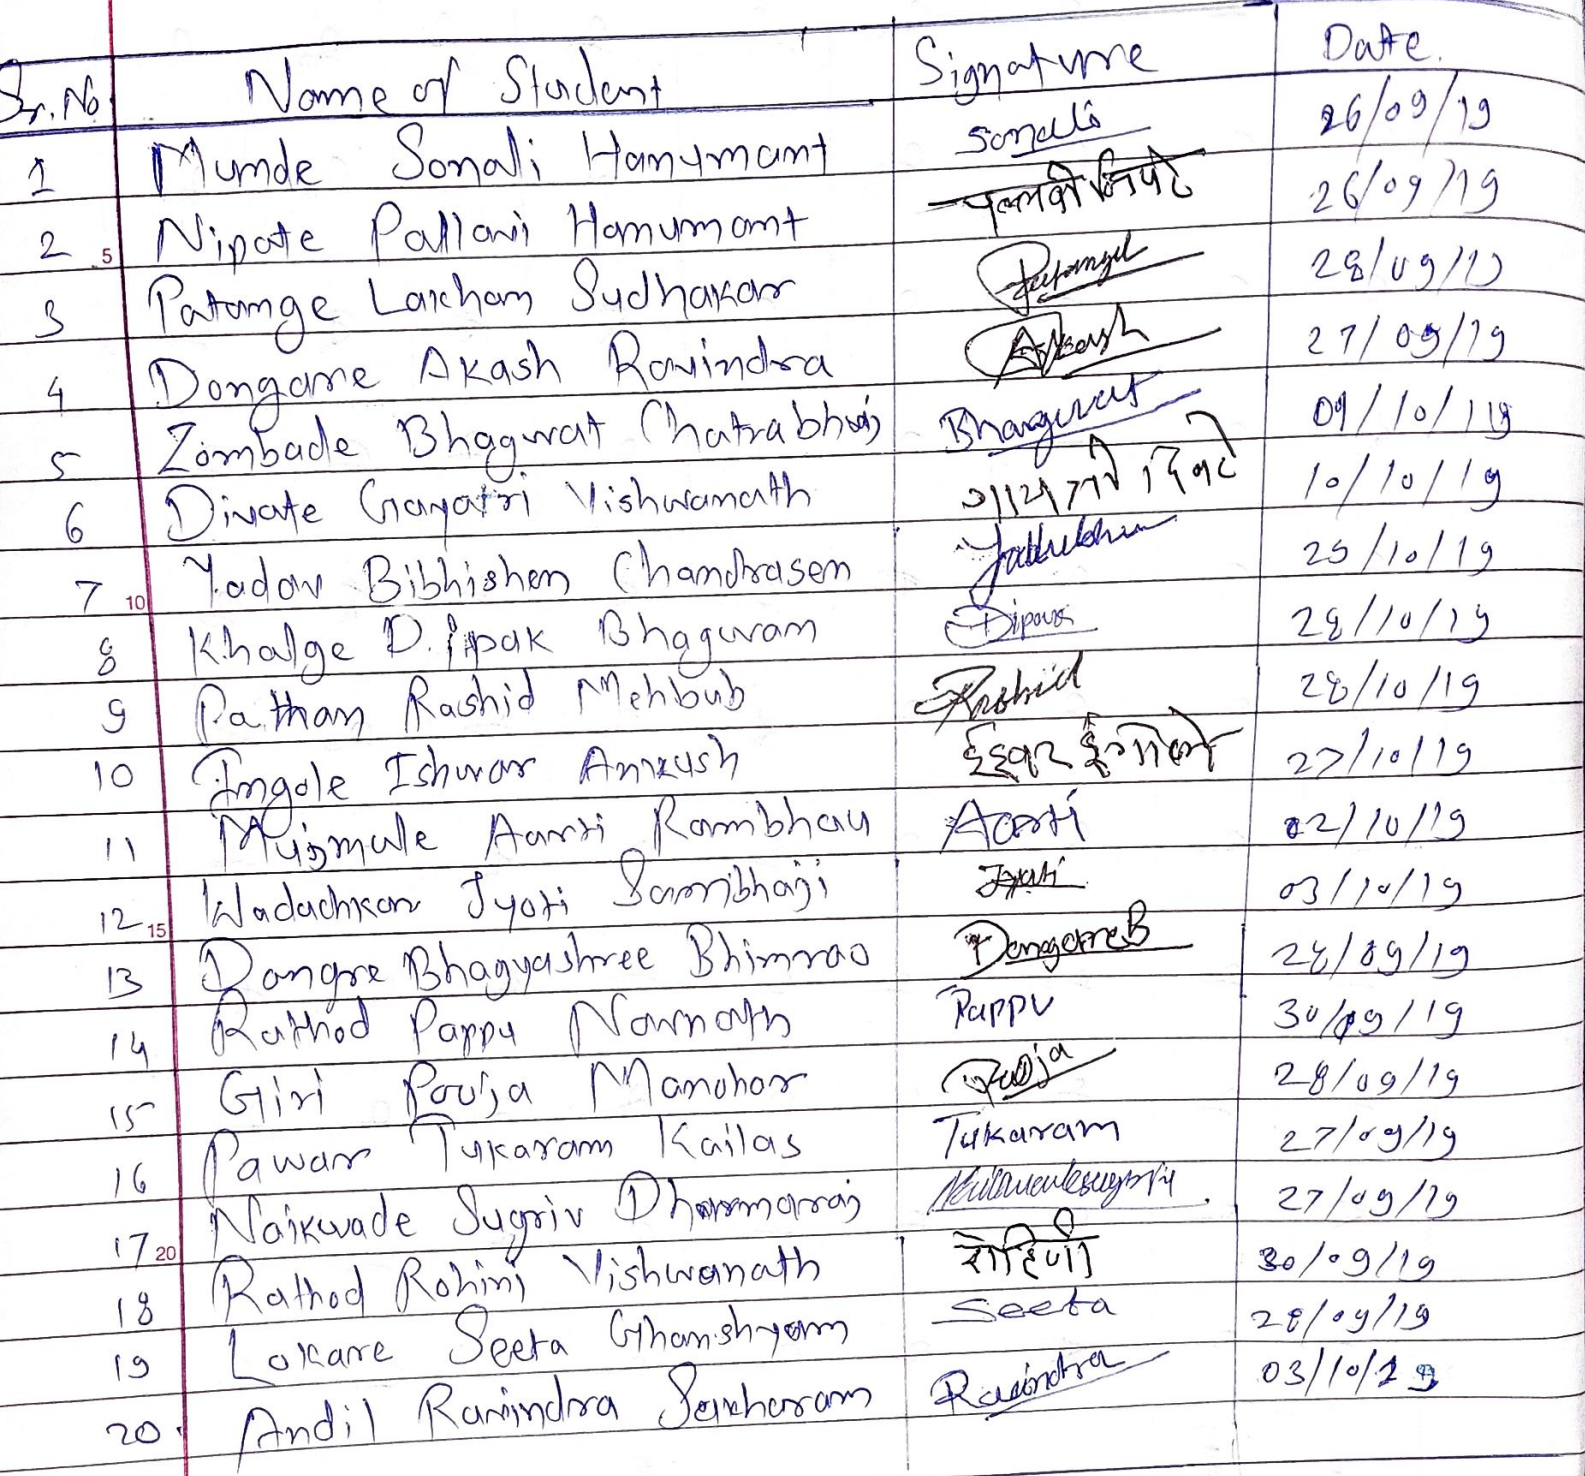 Sr. No. Name of Student Signature Date.
1 Munde Sonali Hanumant Sonali 26/09/19
2 5 Nipate Pallavi Hanumant पल्लवी निपटे 26/09/19
3 Patange Laxman Sudhakar Patange 28/09/19
4 Dongare Akash Ravindra Akash 27/09/19
5 Zombade Bhagwat Chatrabhuj Bhagwat 09/10/19
6 Divate Gayatri Vishwanath गायत्री दिवटे 10/10/19
7 10 Yadav Bibhishen Chandrasen 25/10/19
8 Khalge Dipak Bhagwan Dipak 28/10/19
9 Pathan Rashid Mehbub Rashid 28/10/19
10 Ingole Ishwar Ankush ईश्वर इंगोले 27/10/19
11 Mujmule Aarti Rambhau Aarti 02/10/19
12 15 Wadachkar Jyoti Sambhaji Jyoti 03/10/19
13 Dongre Bhagyashree Bhimrao Dongare B 28/09/19
14 Rathod Pappu Navnath Pappu 30/09/19
15 Giri Pooja Manohar Pooja 28/09/19
16 Pawar Tukaram Kailas Tukaram 27/09/19
17 20 Naikwade Sugriv Dharmaraj 27/09/19
18 Rathod Rohini Vishwanath रोहिणी 30/09/19
19 Lokare Seeta Ghanshyam Seeta 28/09/19
20 Andil Ravindra Sakharam Ravindra 03/10/19